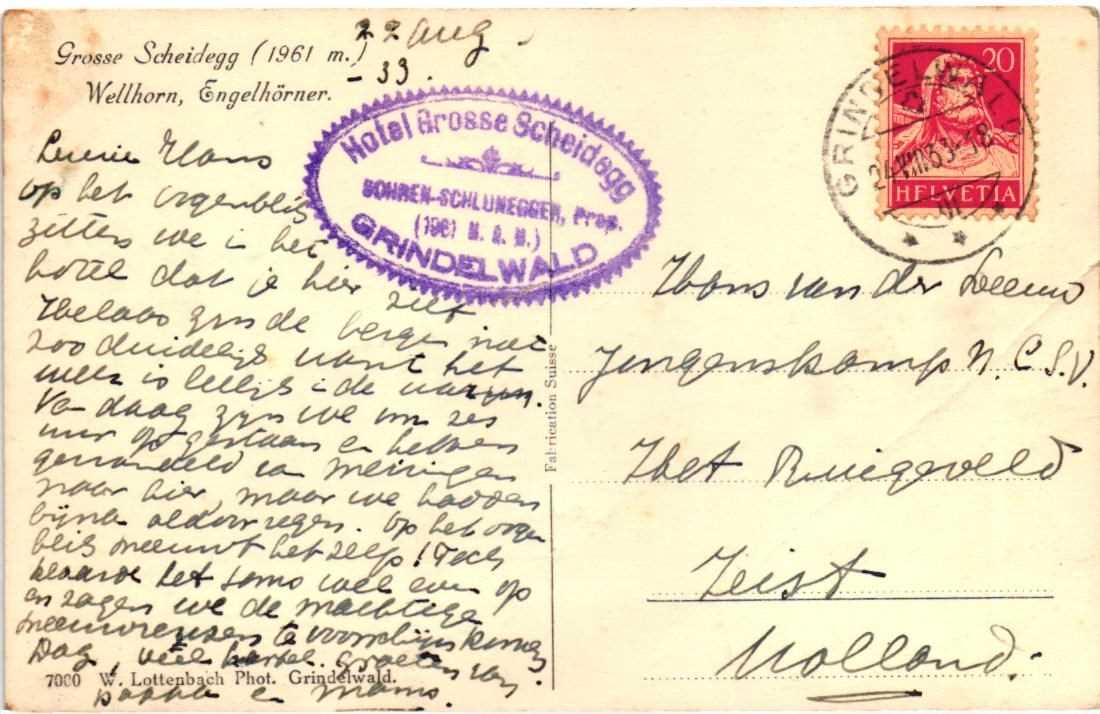 Grosse Scheidegg (1961 m.)
Wellhorn, Engelhörner.
22 Aug
- 33.
Hotel Grosse Scheidegg
BOHREN-SCHLUNEGGER, Prop.
(1961 M. ü. M.)
GRINDELWALD
20
HELVETIA
GRINDELWALD
24.VIII.33-18
Hans
op het oogenblik
zitten we i het
hotel dat je hier ziet
Helaas zijn de bergen niet
zoo duidelijk want het
weer is leelijk i de
Vandaag zijn we om zes
uur opgestaan en hebben
gewandeld van Meiringen
naar hier, maar we hadden
bijna aldoor regen. Op het oogen
blik sneeuwt het zelfs! Toch
klaarde het soms wel even op
en zagen we de machtige
sneeuwreuzen te voorschijn komen
Dag, veel hartel. groeten van
Pappa en Mams.
Hans van der Leeuw
Jongenskamp N.C.S.V.
Het Ruigeveld
Zeist
Holland.
Fabrication Suisse
7000 W. Lottenbach Phot. Grindelwald.